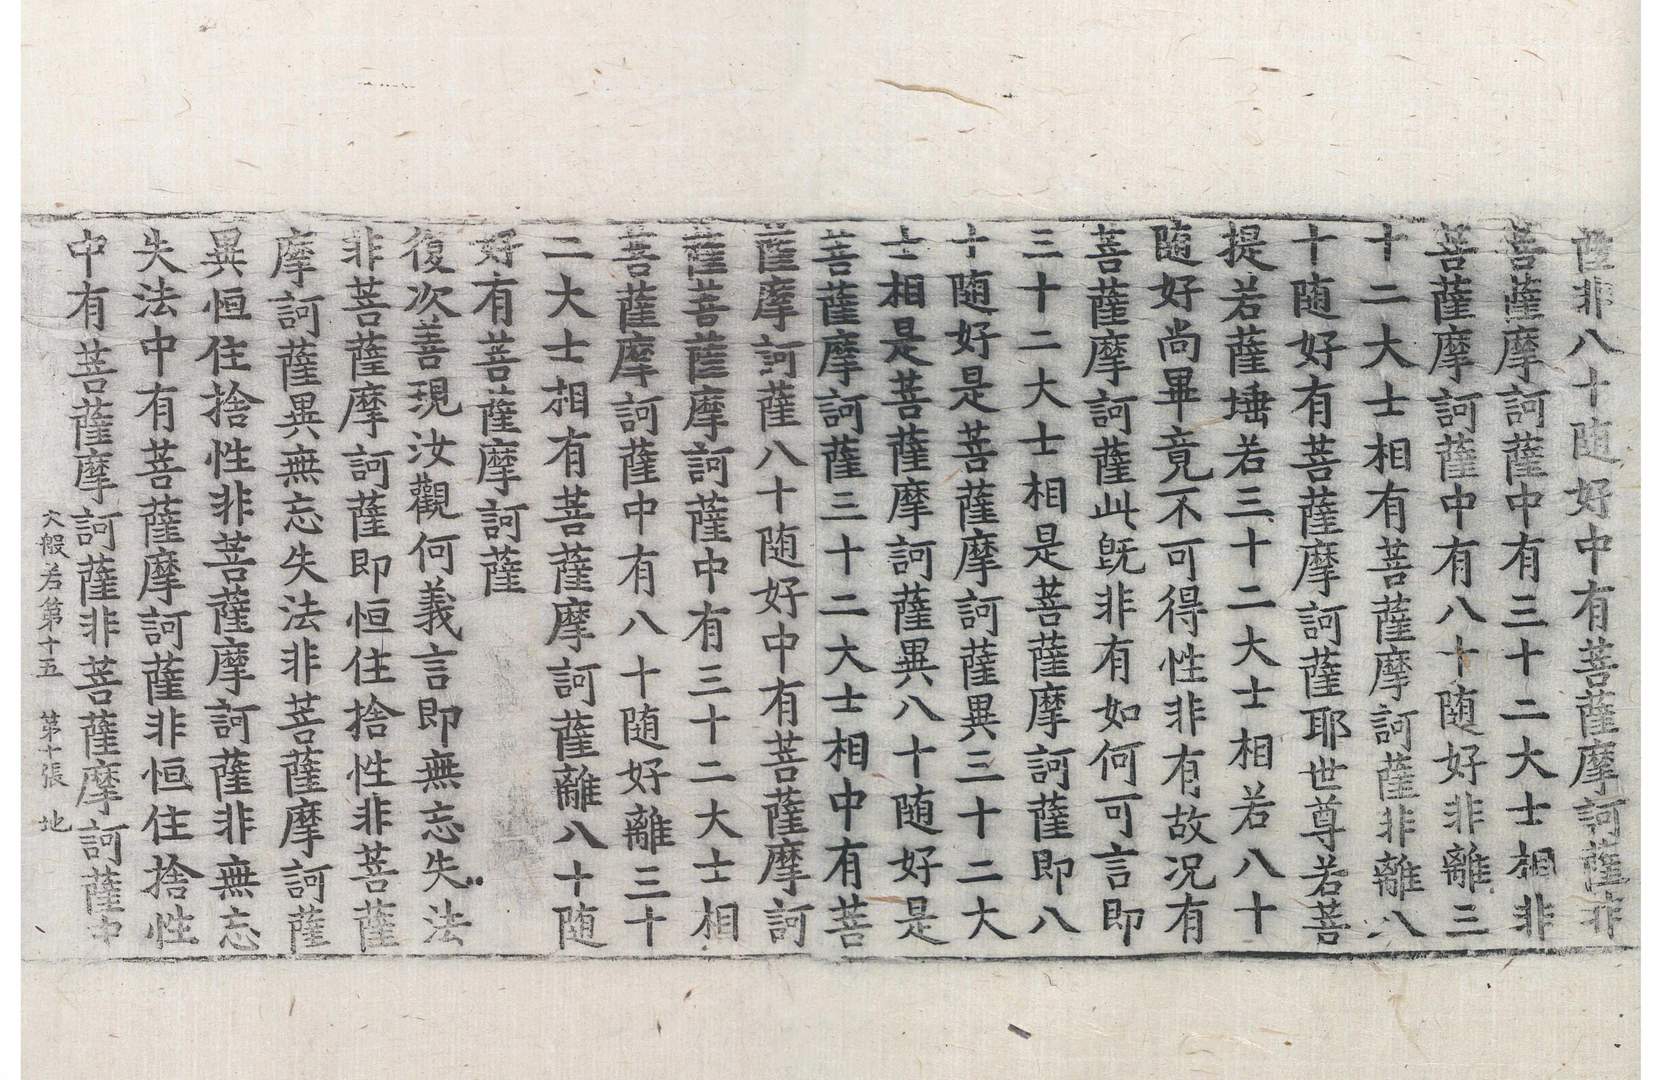 薩非八十随好中有菩薩摩訶薩非
菩薩摩訶薩中有三十二大士相非
菩薩摩訶薩中有八十随好非離三
十二大士相有菩薩摩訶薩非離八
十随好有菩薩摩訶薩耶世尊若菩
提若薩埵若三十二大士相若八十
随好尚畢竟不可得性非有故况有
菩薩摩訶薩此旣非有如何可言即
三十二大士相是菩薩摩訶薩即八
十随好是菩薩摩訶薩異三十二大
士相是菩薩摩訶薩異八十随好是
菩薩摩訶薩三十二大士相中有菩
薩摩訶薩八十随好中有菩薩摩訶
薩菩薩摩訶薩中有三十二大士相
菩薩摩訶薩中有八十随好離三十
二大士相有菩薩摩訶薩離八十随
好有菩薩摩訶薩
復次善現汝觀何義言即無忘失法
非菩薩摩訶薩即恒住捨性非菩薩
摩訶薩異無忘失法非菩薩摩訶薩
異恒住捨性非菩薩摩訶薩非無忘
失法中有菩薩摩訶薩非恒住捨性
中有菩薩摩訶薩非菩薩摩訶薩中
大般若第十五 第十張 地